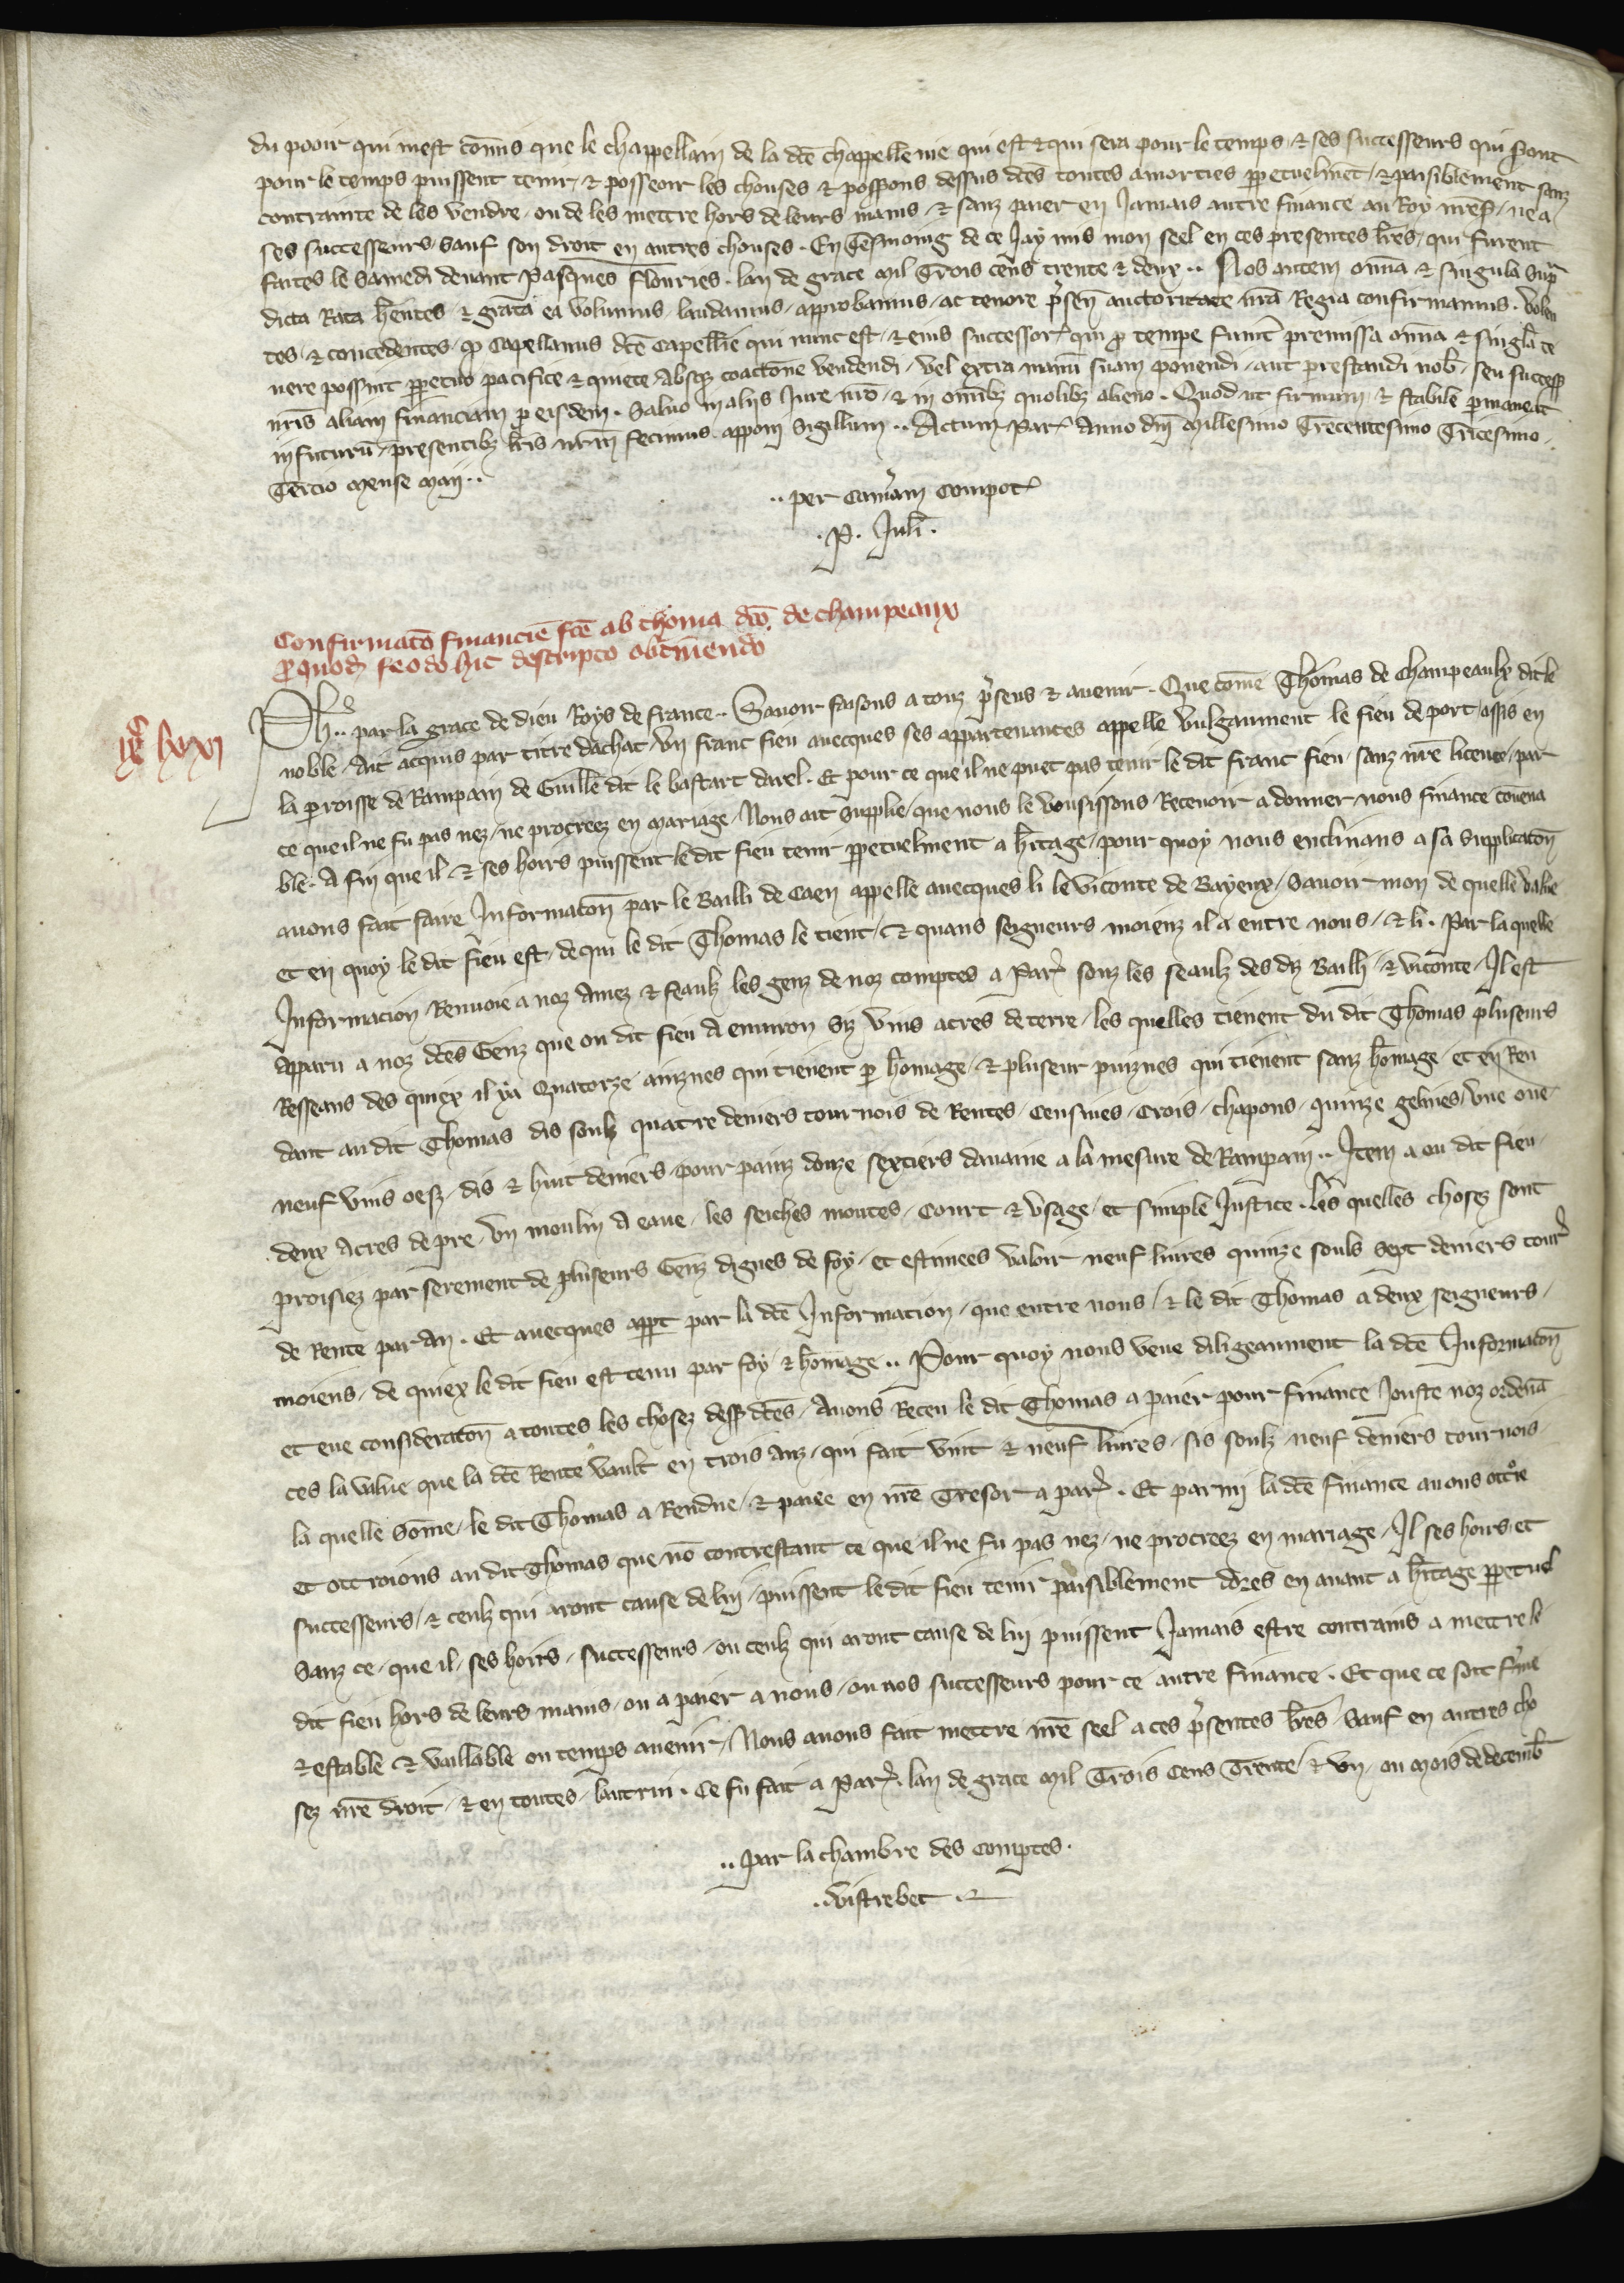 du pooir qui mest cōmis que le chappellain de la dcē chappellenie qui est & qui sera pour le temps & ses successeurs qui sont
pour le temps puissent tenir & posseoir les chouses & possions dessus dcēs toutes amorties ꝑpetuelmēt & paisiblement sanz
contrainte de les vendre ou de les mettre hors de leurs mains & sanz paier en Jamais autre finance au Roy nrēs ne a
ses successeurs sauf son droit en autres chouses. En tesmoing de ce Jay mis mon seel en ces presentes lrēs qui furent
faites le samedi deuant Pasques flouries. lan de grace mil trois cens trente & deux .. Nos autem omīa & singula supra
dicta Rata hēntes & grata ea volumus laudamus approbamus ac tenore p̄sen̄ auctoritate nrā Regia confirmamus. volen
tes & concedentes ꝙ Capellanus dcē Capellie qui nunc est & eius successor qui ꝓ tempe fuint premissa omīa & singla te
nere possint ꝑpetuo pacifice & quiete absqꝫ coactōne vendendi vel extra manū suam ponendi aut prestandi nob seu success
nris aliam financiam ꝓ eisdem. Saluo in aliis Jure nrō & in omībꝫ quolibꝫ alieno. Quod ut firmum & stabile ꝑmaneat
in futurū presentibꝫ lrīs nrm̄ fecimus apponi sigillum .. Actum Par Anno dnī millesimo trecentesimo tricesimo
tercio mense maii ..
.. per cam̄am compot
. P. Juli .
Confirmatō financiē fcē ab thoma dcō de champeaux
ꝓ quodā feodo hic descripto obtinendo
ixᶜ lxxi
Ph .. par la grace de dieu Roys de france .. Sauoir faisons a touz p̄sens & auenir. Que cōme Thomas de Champeaulx dit le
noble Ait acquis par titre dachat vn franc fieu auecques ses appartenances appelle vulgaument le fieu de port assis en
la parroisse de Rampain de Guille dit le bastart darel. Et pour ce que il ne puet pas tenir le dit franc fieu sanz nrē licence par
ce que il ne fu pas nez ne procreez en mariage Nous ait supplie que nous le vousissons Receuoir a donner nous finance couena
ble. A fin que il & ses hoirs puissent le dit fieu tenir ꝑpetuelment a hītage pour quoy nous enclinans a sa supplicatōn
auons fait faire Informatōn par le Bailli de Caen appelle auecques li le viconte de Bayeux Sauoir mon de quelle value
et en quoy le dit fieu est de qui le dit Thomas le tient & quans seigneurs moienz il a entre nous & li. Par la quelle
Informacion Renuoie a noz Amez & feaulz les genz de noz comptes a Par souz les seaulz des dz Bailli & viconte Il est
Apparu a noz dcēs Genz que ou dit fieu a enuiron siz vins acres de terre les quelles tienent du dit Thomas pluseurs
Resseans des quiex il ya Quatorze ainznes qui tienent ꝑ homage & pluseur puiznes qui tienent sanz homage et en Ren
dant audit Thomas dis soulz quatre deniers tournois de Rentes censiues Crois chapons quinze gelines vne oue
neuf vins oefz dis & huit deniers pour painz douze sextiers dauaine a la mesure de Rampain .. Item a ou dit fieu
deux Acres de pre vn moulin a eaue les seiches moutes Court & vsage et simple Justice. les quelles choses sont
proisiez par serement de pluseurs Genz dignes de foy et estimees valoir neuf liures quinze souls sept deniers tour
de Rente par An. Et auecques appt par la dcē Informacion que entre nous & le dit Thomas a deux seigneurs
moiens de quiex le dit fieu est tenu par foy & homage .. Pour quoy nous veue diligeaument la dcē Informatōn
et eue consideratōn a toutes les chosez dessꝰ dcēs Auons Receu le dit Thomas a paier pour finance Jouste noz ordenā
ces la value que la dcē Rente vault en trois Anz qui fait vint & neuf liures sis soulz neuf deniers tournois
la quelle sōme le dit Thomas a Rendue & paiee en nrē Tresor a par. Et parmi la dcē finance auons ottroie
et ottroions audit Thomas que nō contrestant ce que il ne fu pas nez ne procreez en mariage Il ses hoirs et
successeurs & ceulz qui aront cause de lui puissent le dit fieu tenir paisiblement dores en auant a hītage ꝑpetuel
sanz ce que il ses hoirs successeurs ou ceulz qui aront cause de lui puissent Jamais estre contrains a mettre le
dit fieu hors de leurs mains ou a paier a nous ou nos successeurs pour ce autre finance. Et que ce soit ferme
& estable & vaillable ou temps auenir Nous auons fait mettre nrē seel a ces p̄sentes lrēs sauf en autres cho
sez nrē droit & en toutes lautrui. Ce fu fait a Par lan de grace mil trois cens trente & vn ou mois de decemb̄
.. par la chambre des comptes .
.. vistrebec .